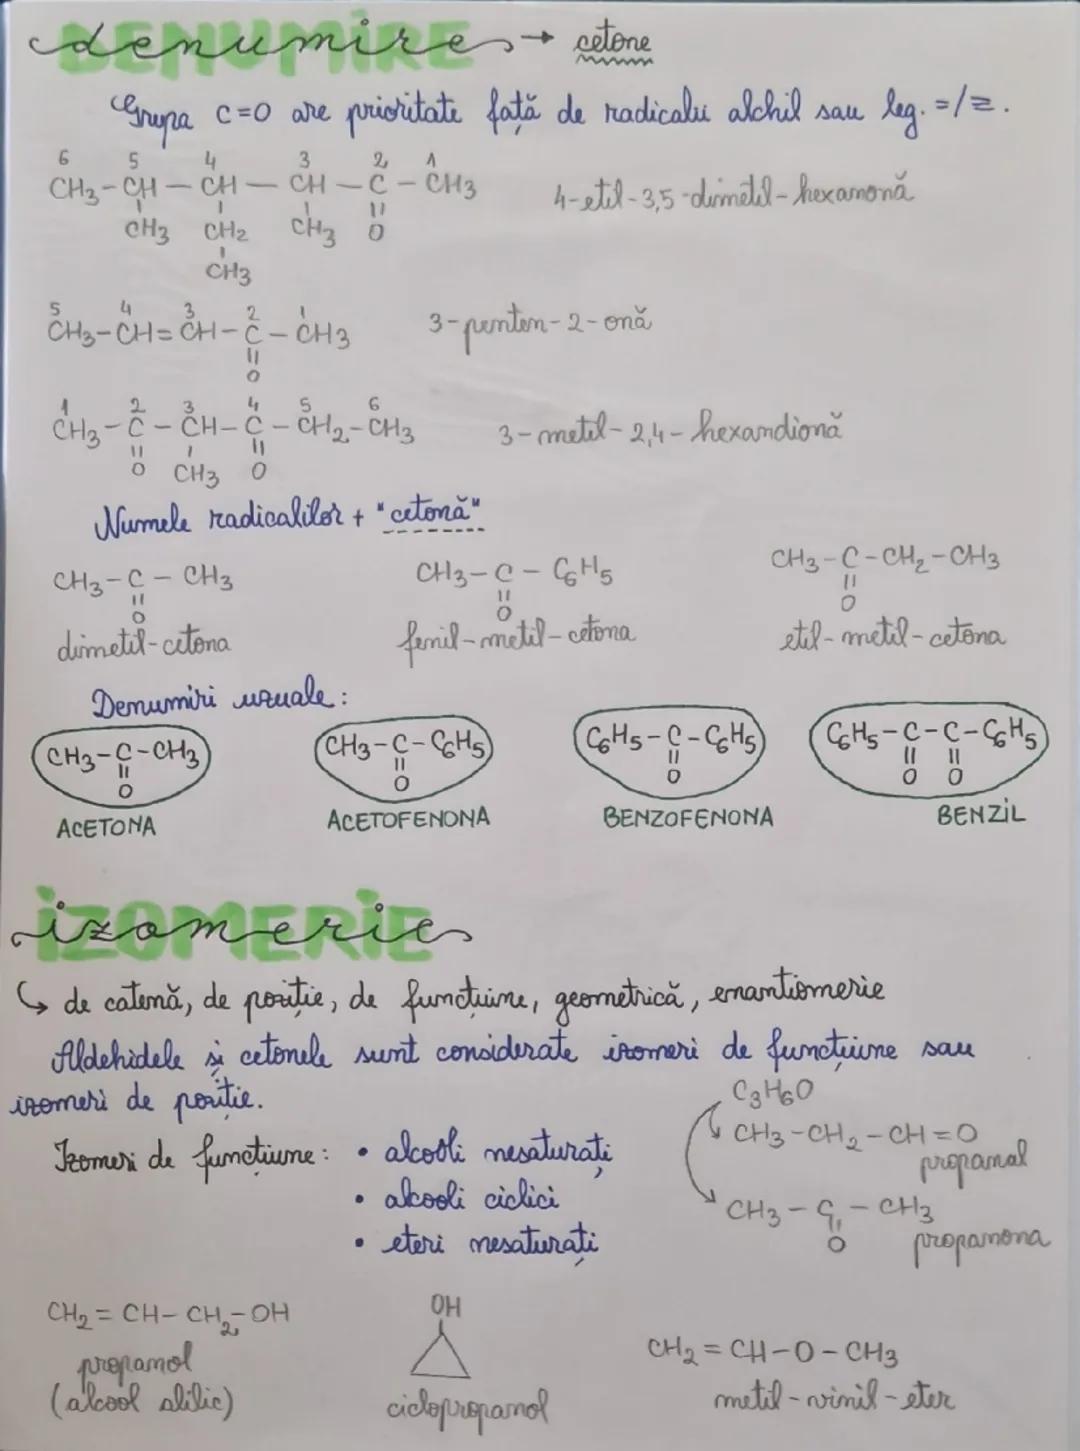 DENUMIRE
denumire → cetone
Grupa C=O are prioritate față de radicalii alchil sau leg. =/≡.
6 5 4 3 2 1
CH3-CH-CH-CH-C-CH3
CH3 CH2 CH3 O
CH3
4-etil-3,5-dimetil-hexanonă
5 4 3 2 1
CH3-CH=CH-C-CH3
O
3-penten-2-onă
1 2 3 4 5 6
CH3-C-CH-C-CH2-CH3
O CH3 O
3-metil-2,4-hexandionă
Numele radicalilor + "cetonă"
CH3-C-CH3
O
dimetil-cetona
CH3-C-C6H5
O
fenil-metil-cetona
CH3-C-CH2-CH3
O
etil-metil-cetona
Denumiri uzuale:
CH3-C-CH3
O
ACETONA
CH3-C-C6H5
O
ACETOFENONA
C6H5-C-C6H5
O
BENZOFENONA
C6H5-C-C-C6H5
O O
BENZIL
IZOMERIE
izomerie
↳ de catenă, de poziție, de funcțiune, geometrică, enantiomerie
Aldehidele și cetonele sunt considerate izomeri de funcțiune sau
izomeri de poziție.
C3H6O
CH3-CH2-CH=O
propanal
CH3-C-CH3
O
propanona
Izomeri de funcțiune: • alcooli nesaturați
• alcooli ciclici
• eteri nesaturați
CH2=CH-CH2-OH
propanol
(alcool alilic)
OH
ciclopropanol
CH2=CH-O-CH3
metil-vinil-eter